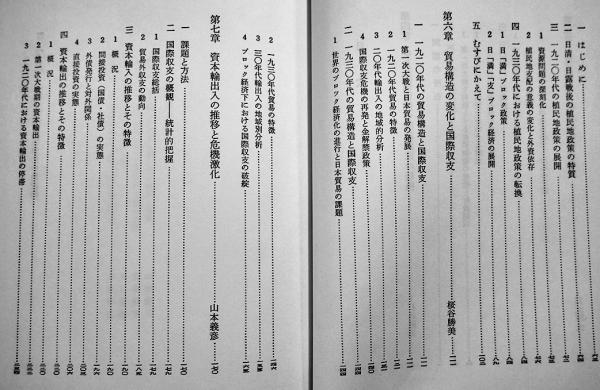 はじめに
二 日清・日露戦後の植民地政策の特質
三 一九二〇年代の植民地政策の展開
1 資源問題の深刻化
2 植民地支配の意義の変化と外資依存
四 一九三〇年代における植民地政策の転換
1 日「満」ブロック政策
2 日「満」「支」ブロック経済の展開
五 むすびにかえて
第六章 貿易構造の変化と国際収支 桜谷勝美
一 一九二〇年代の貿易構造と国際収支
1 第一次大戦と日本貿易の発展
2 一九二〇年代貿易の特徴
3 二〇年代輸出入の地域的分析
4 国際収支危機の再発と金解禁政策
二 一九三〇年代の貿易構造と国際収支
1 世界のブロック経済化の進行と日本貿易の課題
2 一九三〇年代貿易の特徴
3 三〇年代輸出入の地域別分析
4 ブロック経済下における国際収支の破綻
第七章 資本輸出入の推移と危機激化 山本義彦
一 課題と方法
二 国際収支の概観――統計的把握
1 国際収支総括
2 貿易外収支の動向
三 資本輸入の推移とその特徴
1 概況
2 間接投資(国債・社債)の実態
3 外債発行と対外関係
4 直接投資の実態
四 資本輸出の推移とその特徴
1 概況
2 第一次大戦期の資本輸出
3 一九二〇年代における資本輸出の停滞